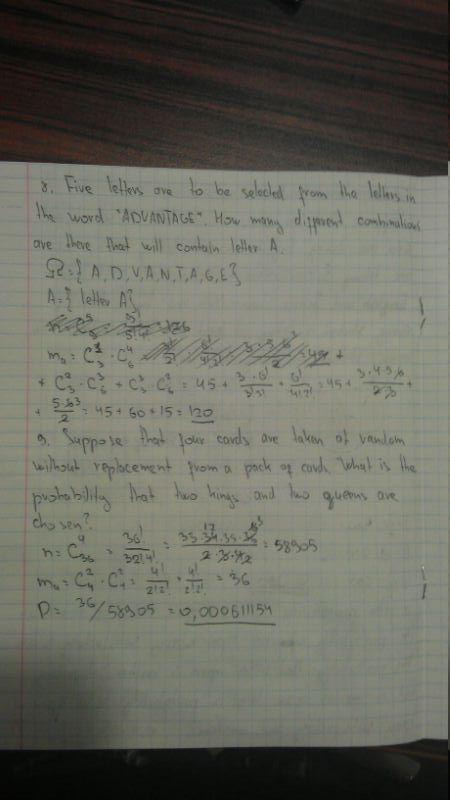 8. Five letters are to be selected from the letters in
the word "ADVANTAGE". How many different combinations
are there that will contain letter A.
Ω={A,D,V,A,N,T,A,G,E}
A={letter A}
mₐ = C₃¹ · C₆⁴
+ C₃² · C₆³ + C₃³ · C₆² = 45 + 3·6!/3!3! + 6!/4!2! = 45 +
+ 5·6³/2 = 45 + 60 + 15 = 120
9. Suppose that four cards are taken at random
without replacement from a pack of cards. What is the
probability that two kings and two queens are
chosen?
n = C₃₆⁴ = 36!/32!4! = = 58905
mₐ = C₄² · C₄² = 4!/2!2! · 4!/2!2! = 36
P = 36/58905 = 0,000611154